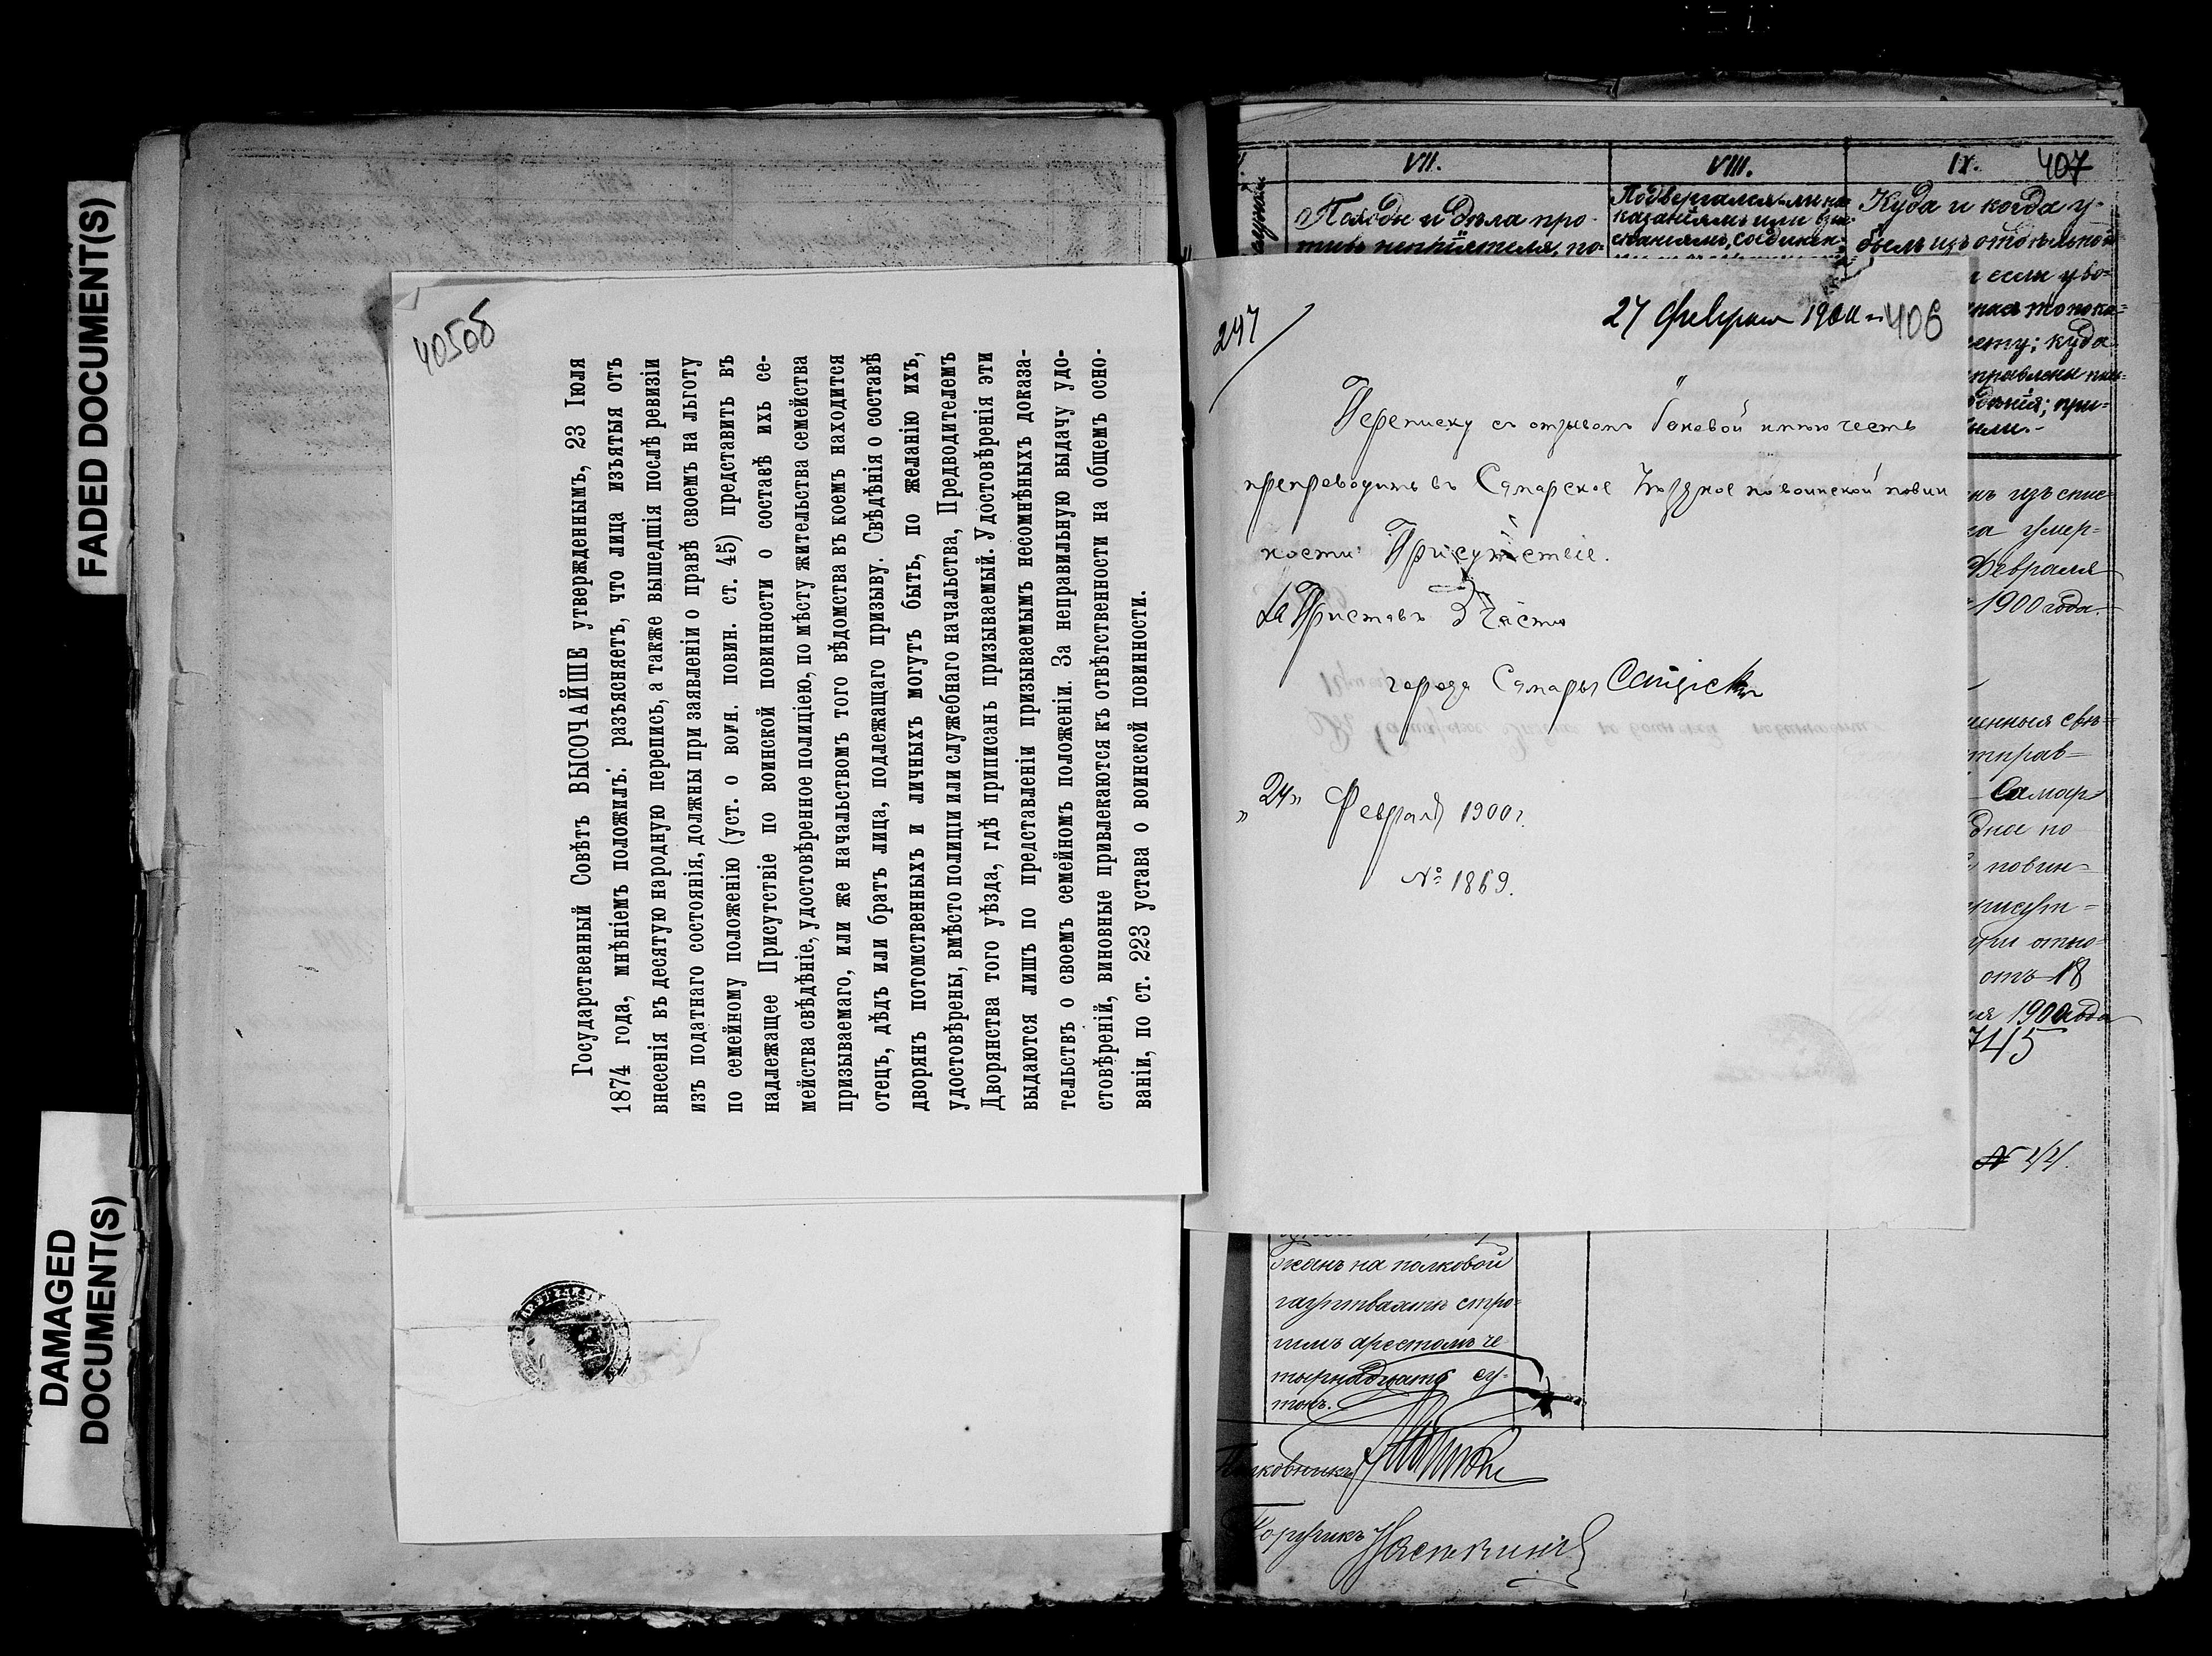 FADED DOCUMENT(S)
DAMAGED
DOCUMENT(S)
405об
Государственный Совѣтъ ВЫСОЧАЙШЕ утвержденнымъ, 23 Іюля
1874 года, мнѣніемъ положилъ: разъясняетъ, что лица изъятыя отъ
внесенія въ десятую народную перепись, а также вышедшія послѣ ревизіи
изъ податнаго состоянія, должны при заявленіи о правѣ своемъ на льготу
по семейному положенію (уст. о воин. повин. ст. 45) представить въ
надлежащее Присутствіе по воинской повинности о составѣ ихъ се-
мейства свѣдѣніе, удостовѣренное полиціею, по мѣсту жительства семейства
призываемаго, или же начальствомъ того вѣдомства въ коемъ находится
отецъ, дѣдъ или братъ лица, подлежащаго призыву. Свѣдѣнія о составѣ
дворянъ потомственныхъ и личныхъ могутъ быть, по желанію ихъ,
удостовѣрены, вмѣсто полиціи или служебнаго начальства, Предводителемъ
Дворянства того уѣзда, гдѣ приписанъ призываемый. Удостовѣренія эти
выдаются лишь по представленіи призываемымъ несомнѣныхъ доказа-
тельствъ о своемъ семейномъ положеніи. За неправильную выдачу удо-
стовѣреній, виновные привлекаются къ отвѣтственности на общемъ осно-
ваніи, по ст. 223 устава о воинской повинности.
VII.
VIII.
IX.
407
Походы и дѣла про-
тивъ непріятеля, по-
Подвергался-ли на-
казаніямъ или взы-
сканіямъ, соединен-
Куда и когда у-
былъ изъ отдѣльной
если уво-
ету; куда
при-
247
27 февраля 1900 г.
406
Переписку съ отзывомъ имѣю честь
препроводить въ Самарское Уѣздное по воинской повин
ности Присутствіе.
За Пристава 3 Части
города Самары
„24" Февраля 1900 г.
№ 1869.
изъ спис-
умер-
Февраля
1900 года.
отправ-
Самар
дное по
повин-
присут-
отно-
отъ 18
1900 года
745
№ 44.
жанъ на полковой
гауптвахтѣ стро-
гимъ арестомъ че
тырнадцать су-
токъ.
Полковникъ
Поручикъ